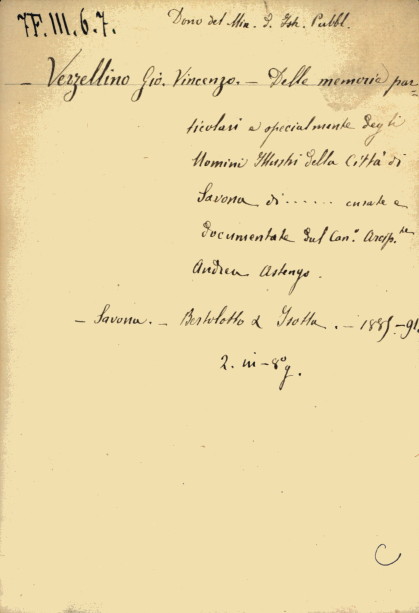 7F.III.6.7.
Dono del Min. d. Istr. Pubbl.
- Verzellino Gio. Vincenzo. - Delle memorie par=
ticolari e specialmente degli
Uomini Illustri della Città di
Savona di ...... curate e
documentate dal Can.º Arcip.te
Andrea Astengo.
- Savona. - Bertolotto & Isotta. - 1885-91.
2. in-8º g.
C